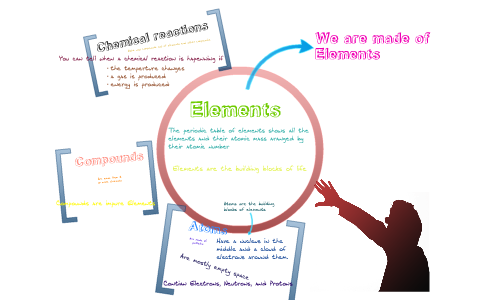 Chemical reactions
You can tell when a chemical reaction is happening if
• the temperture changes
• a gas is produced
• energy is produced
We are made of
Elements
Elements
The periodic table of elements shows all the
elements and their atomic mass arranged by
their atomic number
Elements are the building blocks of life
Compounds
Compounds are
Elements
Atoms are the building
blocks of elements
Atoms
Have a nucleus in the
middle and a cloud of
electrons around them.
Are mostly empty space
Contain Electrons, Neutrons, and Protons